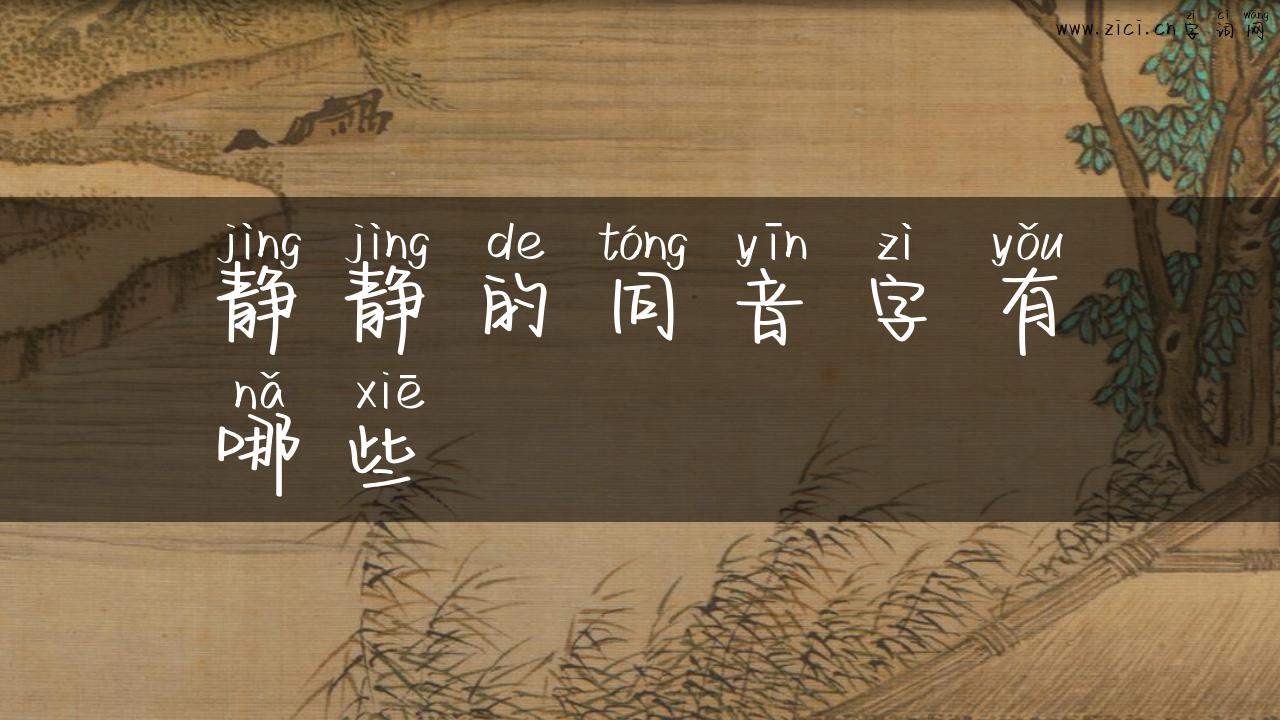 zì cí wǎng
www.zici.cn字词网
jìng jìng de tóng yīn zì yǒu
静静的同音字有
nǎ xiē
哪些